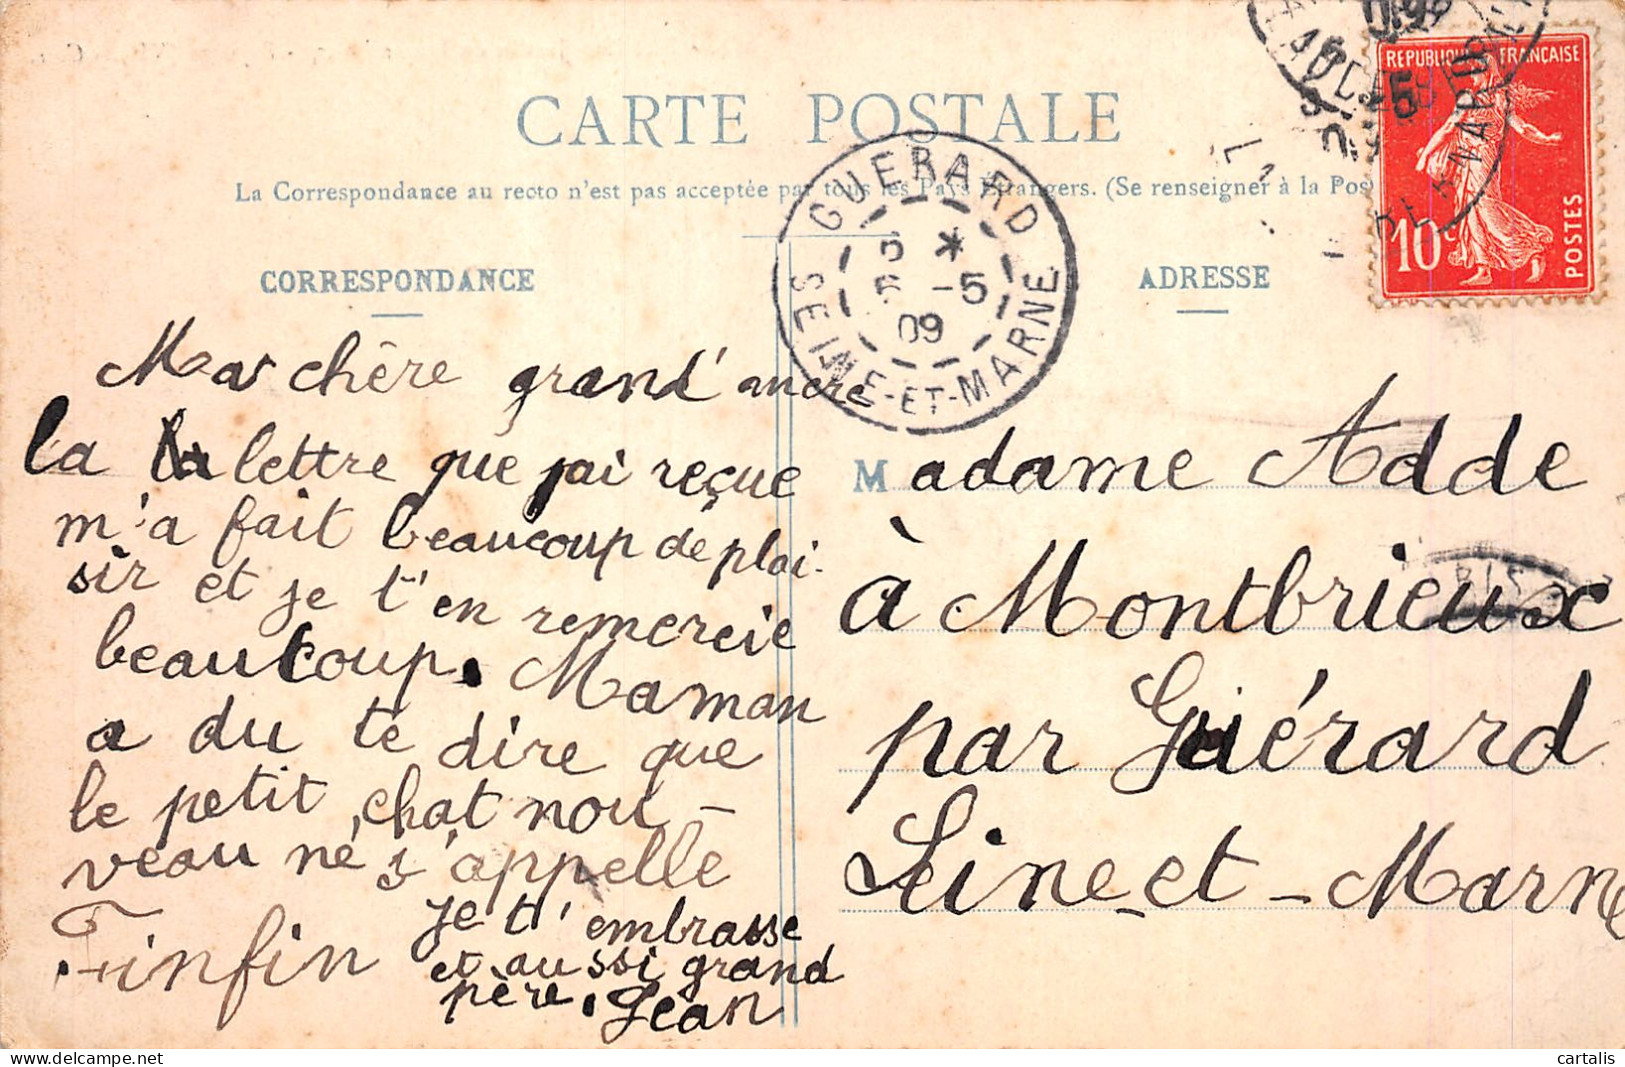 CARTE POSTALE
La Correspondance au recto n'est pas acceptée par tous les Pays Étrangers. (Se renseigner à la Pos
CORRESPONDANCE
ADRESSE
REPUBLIQUE FRANÇAISE
10c
POSTES
GUERARD
5 *
5 -5
09
SEINE-ET-MARNE
Ma chère grand' mère
la la lettre que j'ai reçue
m'a fait beaucoup de plai-
sir et je t'en remercie
beaucoup. Maman
a du te dire que
le petit chat nou-
veau né s'appelle
Finfin
je t'embrasse
et aussi grand
père. Jean
Madame Adde
à Montbrieux
par Guérard
Seine-et-Marne
cartalis